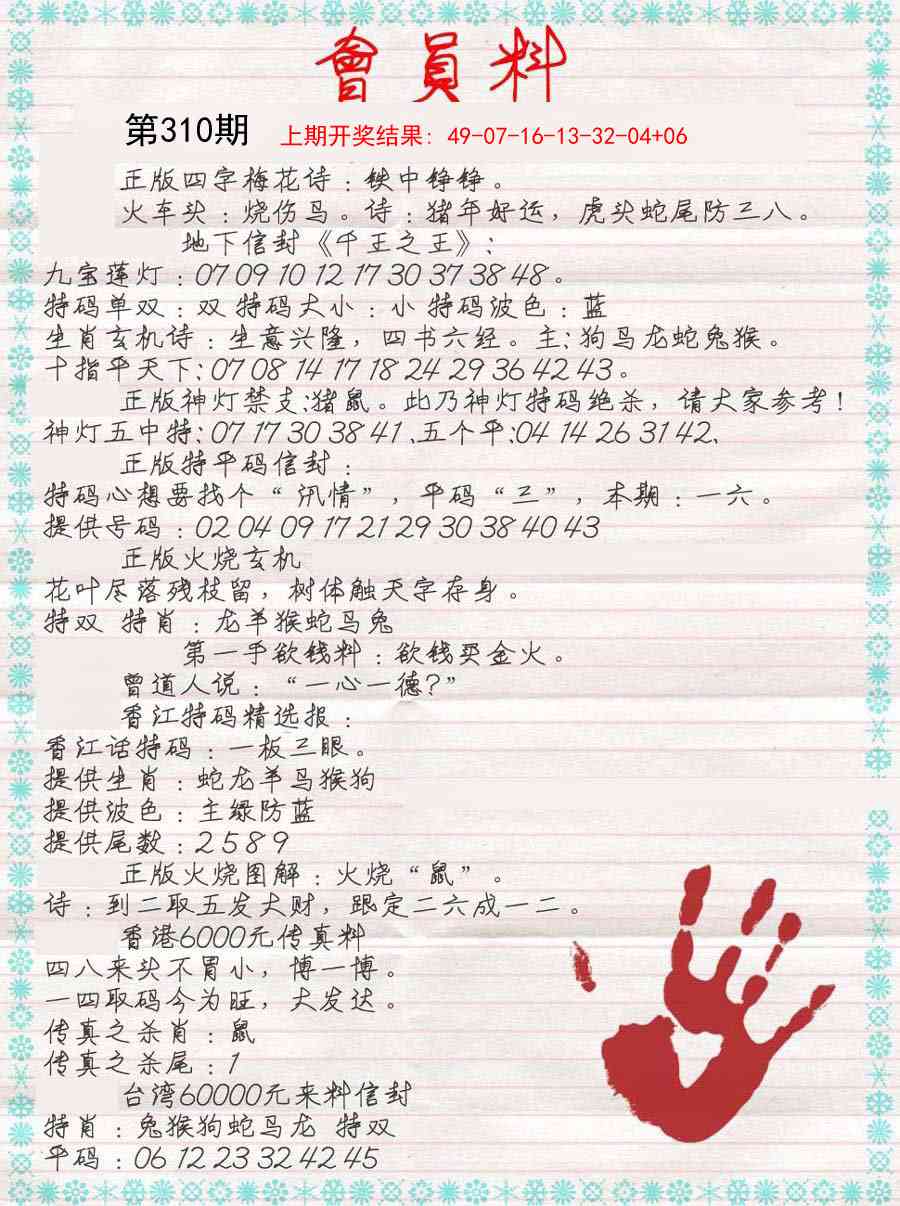 會員料
第310期 上期开奖结果: 49-07-16-13-32-04+06
正版四字梅花诗：铁中铮铮。
火车头：烧伤鸟。诗：猪年好运，虎头蛇尾防三八。
地下信封《千王之王》:
九宝莲灯：07 09 10 12 17 30 37 38 48。
特码单双：双 特码大小：小 特码波色：蓝
生肖玄机诗：生意兴隆，四书六经。主:狗马龙蛇兔猴。
十指平天下:07 08 14 17 18 24 29 36 42 43。
正版神灯禁支:猪鼠。此乃神灯特码绝杀，请大家参考!
神灯五中特:07 17 30 38 41、五个平:04 14 26 31 42、
正版特平码信封：
特码心想要找个“汛情”，平码“三”，本期：一六。
提供号码：02 04 09 17 21 29 30 38 40 43
正版火烧玄机
花叶尽落残枝留，树体触天字存身。
特双 特肖：龙羊猴蛇马兔
第一手欲钱料：欲钱买金火。
曾道人说：“一心一德?”
香江特码精选报：
香江话特码：一板三眼。
提供生肖：蛇龙羊马猴狗
提供波色：主绿防蓝
提供尾数：2 5 8 9
正版火烧图解：火烧“鼠”。
诗：到二取五发大财，跟定二六成一二。
香港6000元传真料
四八来头不冒小，博一博。
一四取码今为旺，大发达。
传真之杀肖：鼠
传真之杀尾：1
台湾60000元来料信封
特肖：兔猴狗蛇马龙 特双
平码：06 12 23 32 42 45